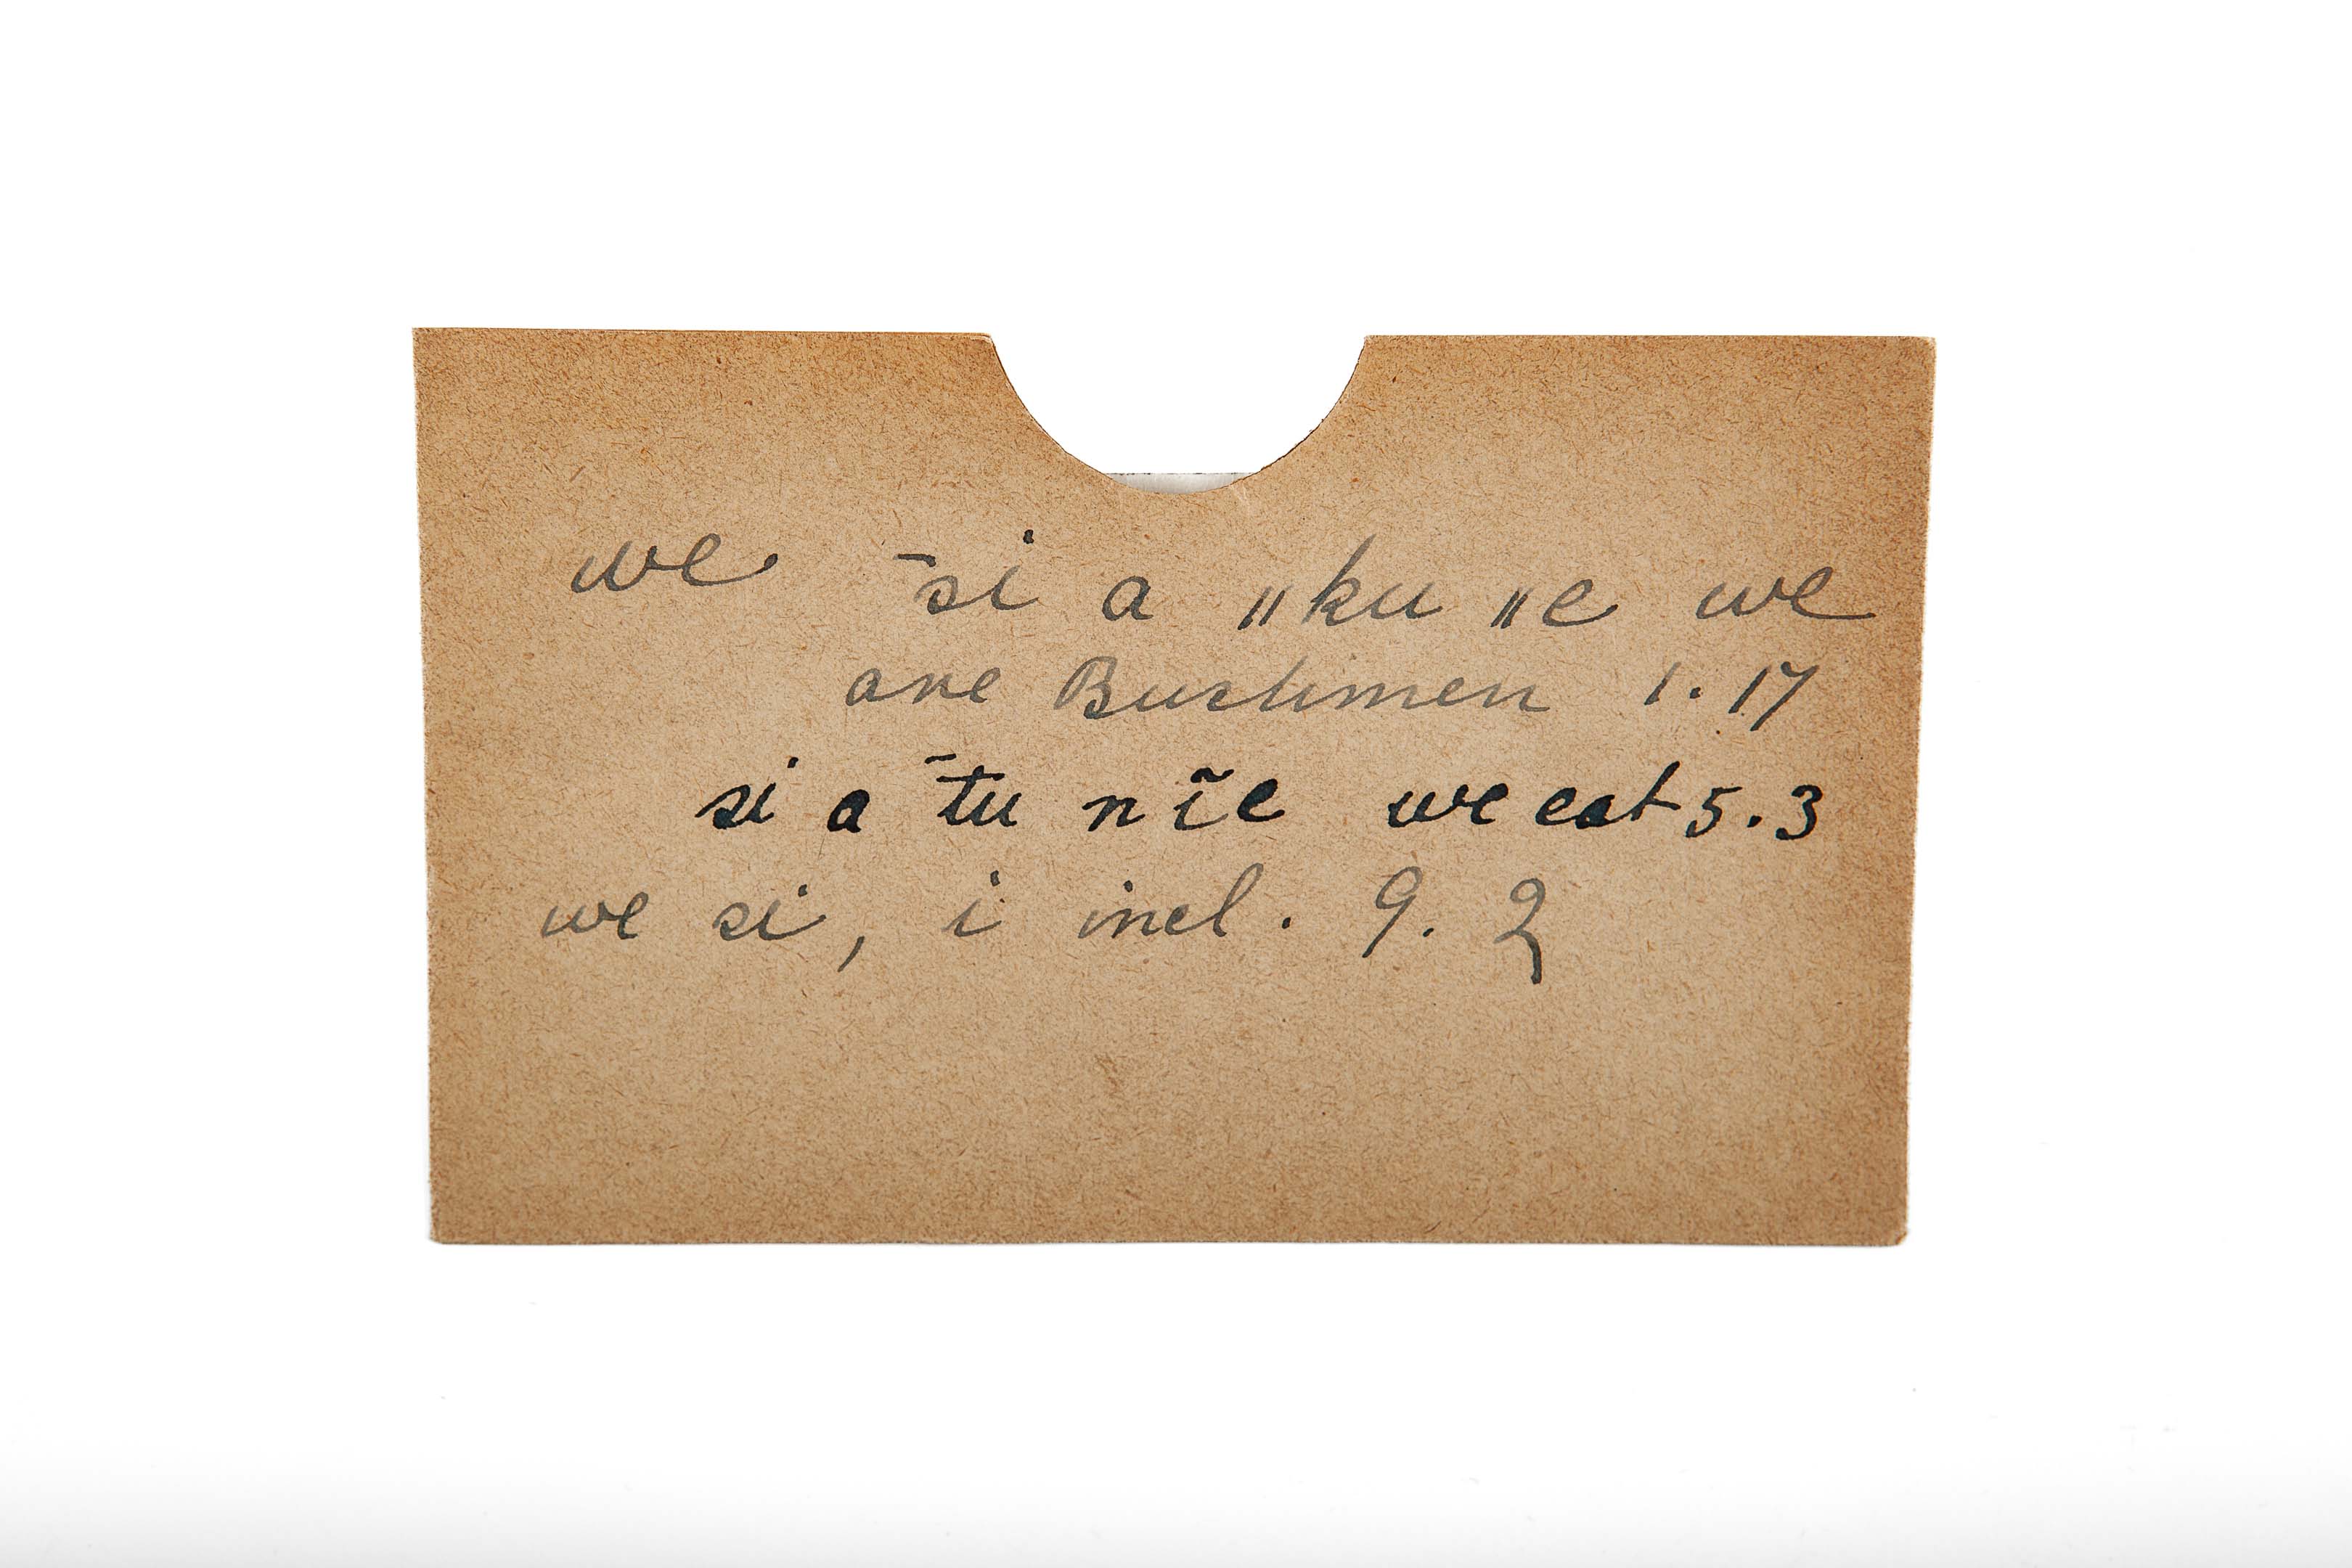 we ¯si a ıı ku ıı e we
are Bushmen 1.17
si a ¯tu n ĩe we eat 5.3
we si, i incl. 9. 2